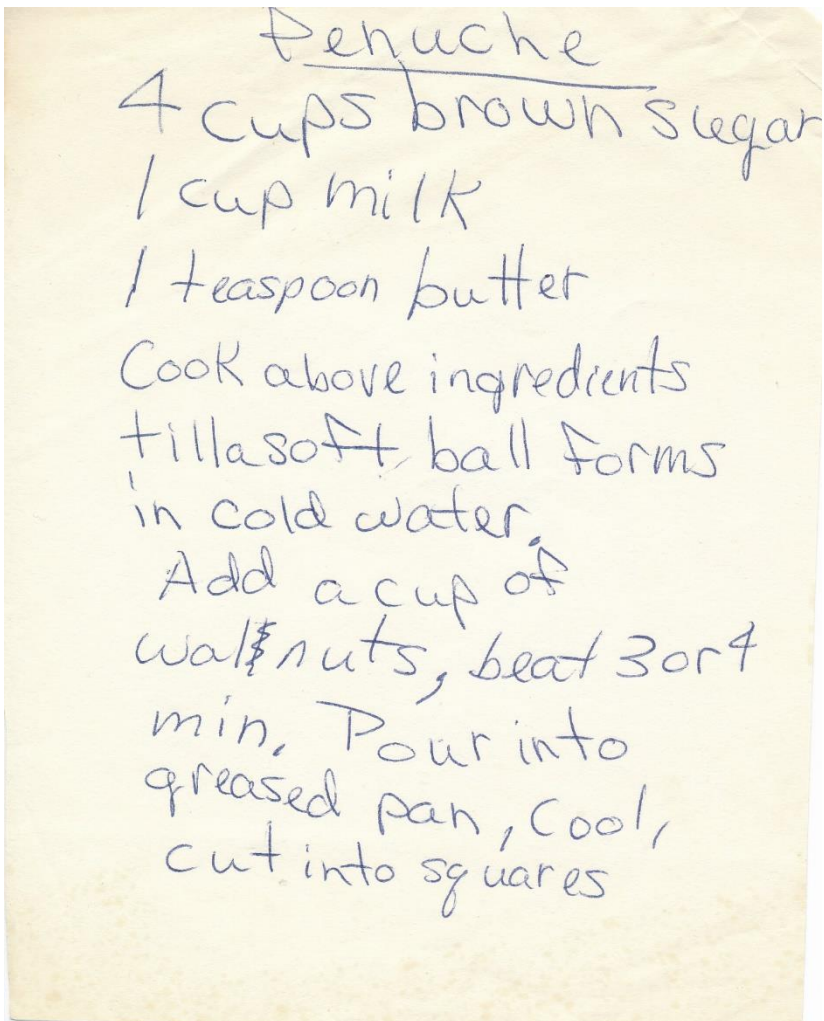 Penuche
4 cups brown sugar
1 cup milk
1 teaspoon butter
Cook above ingredients
till a soft ball forms
in cold water.
Add a cup of
walnuts, beat 3 or 4
min. Pour into
greased pan, Cool,
cut into squares